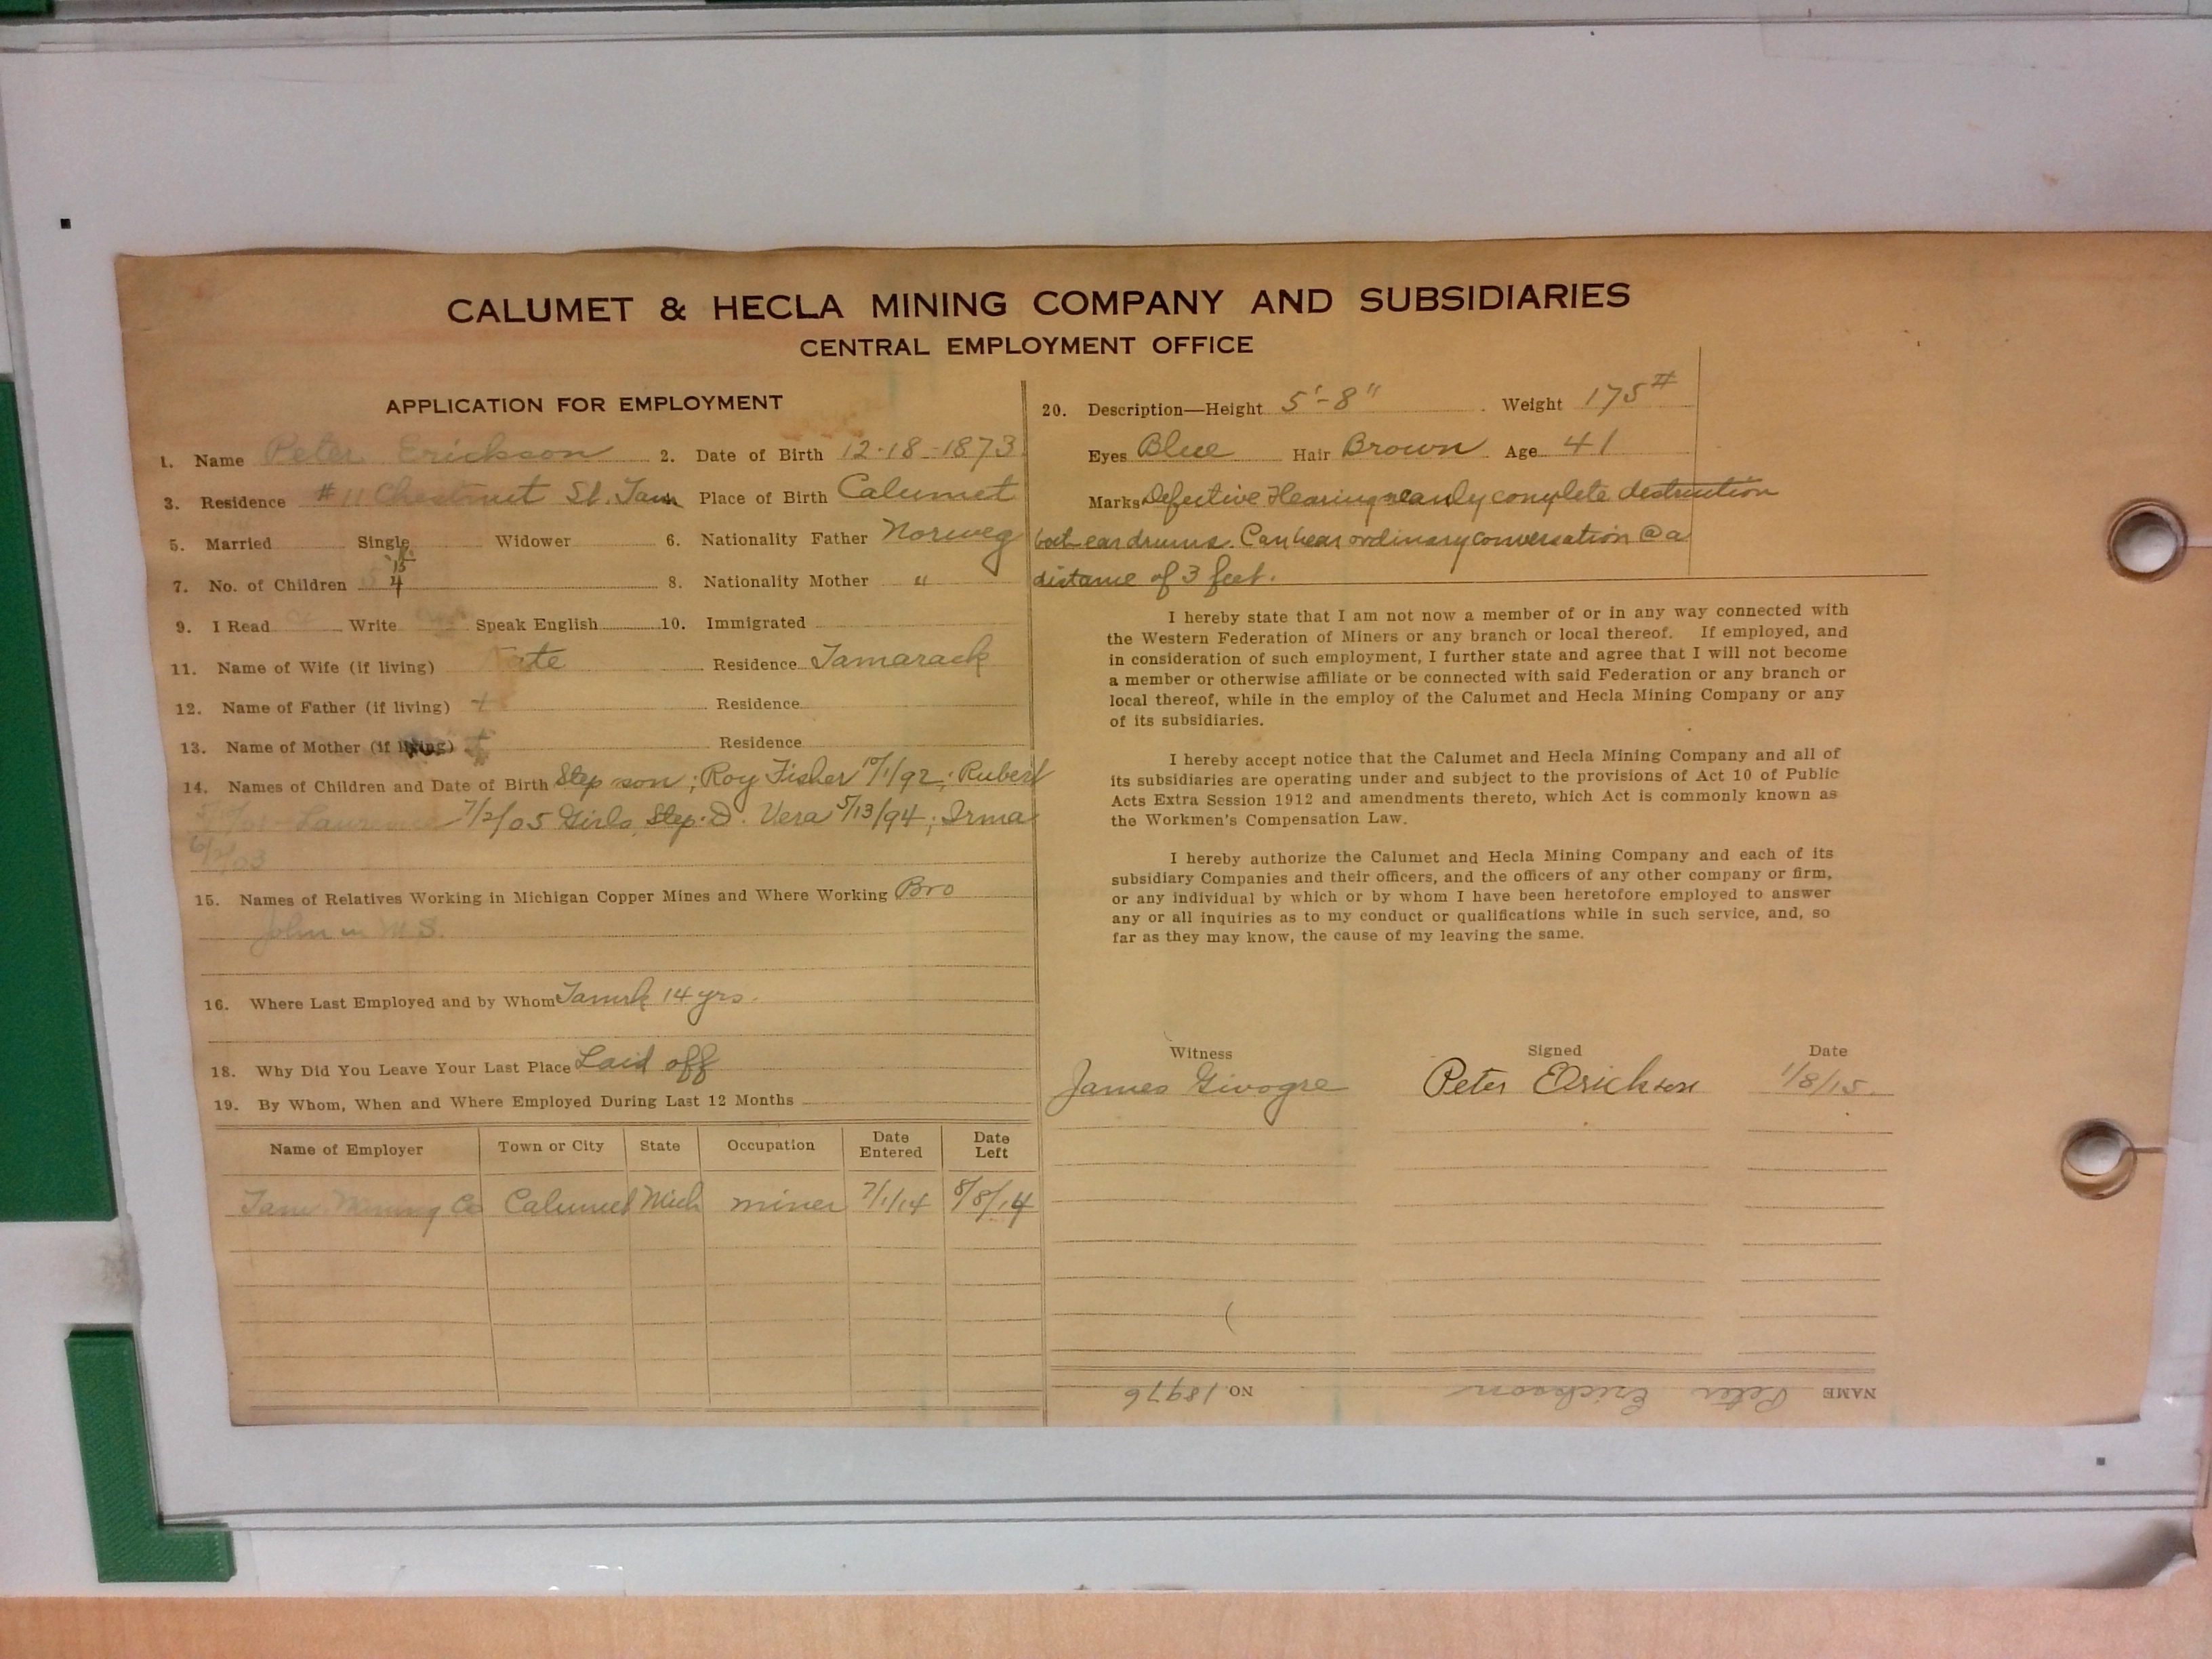 CALUMET & HECLA MINING COMPANY AND SUBSIDIARIES
CENTRAL EMPLOYMENT OFFICE
APPLICATION FOR EMPLOYMENT
1. Name Peter Erickson 2. Date of Birth 12-18-1873
3. Residence #11 Chestnut St. Tam Place of Birth Calumet
5. Married Single Widower 6. Nationality Father Norweg
7. No. of Children 4 8. Nationality Mother "
9. I Read Write Speak English 10. Immigrated
11. Name of Wife (if living) Residence Tamarack
12. Name of Father (if living) + Residence
13. Name of Mother (if living) + Residence
14. Names of Children and Date of Birth Step son; Roy Fisher 10/1/92; Rubert
Laurence 7/2/05 Girls, Step. D. Vera 5/13/94; Irma
15. Names of Relatives Working in Michigan Copper Mines and Where Working Bro
John in M.S.
16. Where Last Employed and by Whom Tamrk 14 yrs.
18. Why Did You Leave Your Last Place Laid off
19. By Whom, When and Where Employed During Last 12 Months
Name of Employer Town or City State Occupation Date Entered Date Left
Tam Mining Co Calumet Mich miner 7/1/14 8/8/14
20. Description—Height 5'-8" Weight 175#
Eyes Blue Hair Brown Age 41
Marks Defective Hearing nearly complete destruction
both ear drums. Can hear ordinary conversation @ a
distance of 3 feet.
I hereby state that I am not now a member of or in any way connected with
the Western Federation of Miners or any branch or local thereof. If employed, and
in consideration of such employment, I further state and agree that I will not become
a member or otherwise affiliate or be connected with said Federation or any branch or
local thereof, while in the employ of the Calumet and Hecla Mining Company or any
of its subsidiaries.
I hereby accept notice that the Calumet and Hecla Mining Company and all of
its subsidiaries are operating under and subject to the provisions of Act 10 of Public
Acts Extra Session 1912 and amendments thereto, which Act is commonly known as
the Workmen's Compensation Law.
I hereby authorize the Calumet and Hecla Mining Company and each of its
subsidiary Companies and their officers, and the officers of any other company or firm,
or any individual by which or by whom I have been heretofore employed to answer
any or all inquiries as to my conduct or qualifications while in such service, and, so
far as they may know, the cause of my leaving the same.
Witness Signed Date
James Givogre Peter Erickson 1/8/15.
NAME Peter Erickson NO. 18976